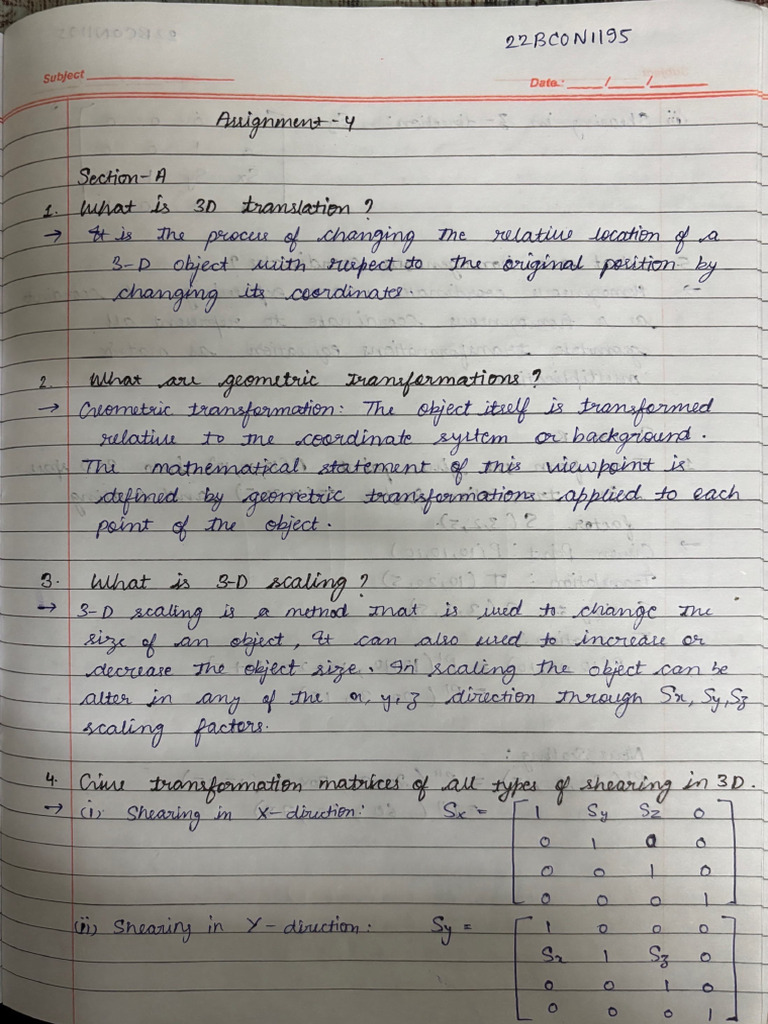 22BCON1195
Subject
Date: / /
Assignment-4
Section-A
1. What is 3D translation?
→ It is the process of changing the relative location of a
3-D object with respect to the original position by
changing its coordinates.
2. What are geometric transformations?
→ Geometric transformation: The object itself is transformed
relative to the coordinate system or background.
The mathematical statement of this viewpoint is
defined by geometric transformations applied to each
point of the object.
3. What is 3-D scaling?
→ 3-D scaling is a method that is used to change the
size of an object, It can also used to increase or
decrease the object size. In scaling the object can be
alter in any of the x, y, z direction through Sx, Sy, Sz
scaling factors.
4. Give transformation matrices of all types of shearing in 3D.
→ (i) Shearing in X-direction: Sx = [ 1 Sy Sz 0
0 1 0 0
0 0 1 0
0 0 0 1 ]
(ii) Shearing in Y-direction: Sy = [ 1 0 0 0
Sx 1 Sz 0
0 0 1 0
0 0 0 1 ]